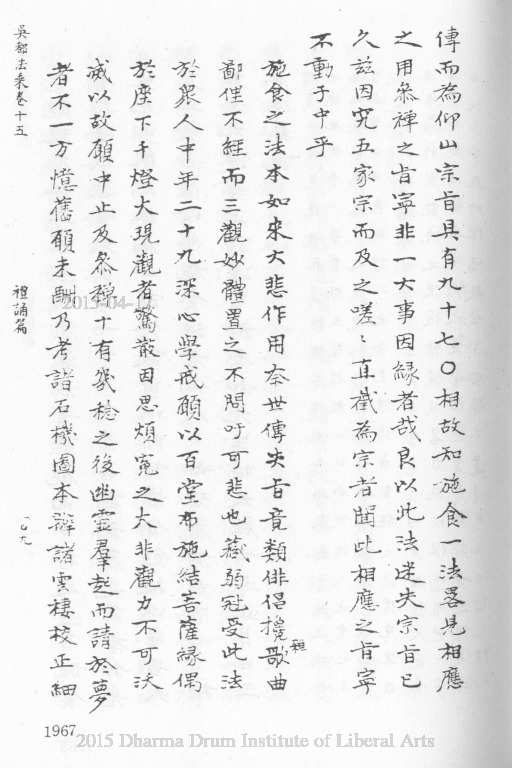 傳而為仰山宗旨具有九十七〇相故知施食一法畧見相應
之用叅禪之旨寧非一大事因緣者哉良以此法迷失宗旨已
久茲因究五家宗而及之嗟〻直截為宗者閱此相應之旨寧
不動于中乎
施食之法本如來大悲作用奈世傳失旨竟類俳倡攙歌曲
種
鄙俚不經而三觀妙體置之不問吁可悲也藏弱冠受此法
於眾人中年二十九深心學戒願以百堂布施結菩薩緣偶
於座下千燈大現觀者驚散因思煩冤之大非觀力不可沃
滅以故願中止及叅窮十有幾稔之後幽靈羣起而請於夢
者不一方憶舊願未酬乃考諸石機圖本辨諸雲棲校正細
吳都法乘卷十五
禮誦篇
一〇九
1967
2015 Dharma Drum Institute of Liberal Arts